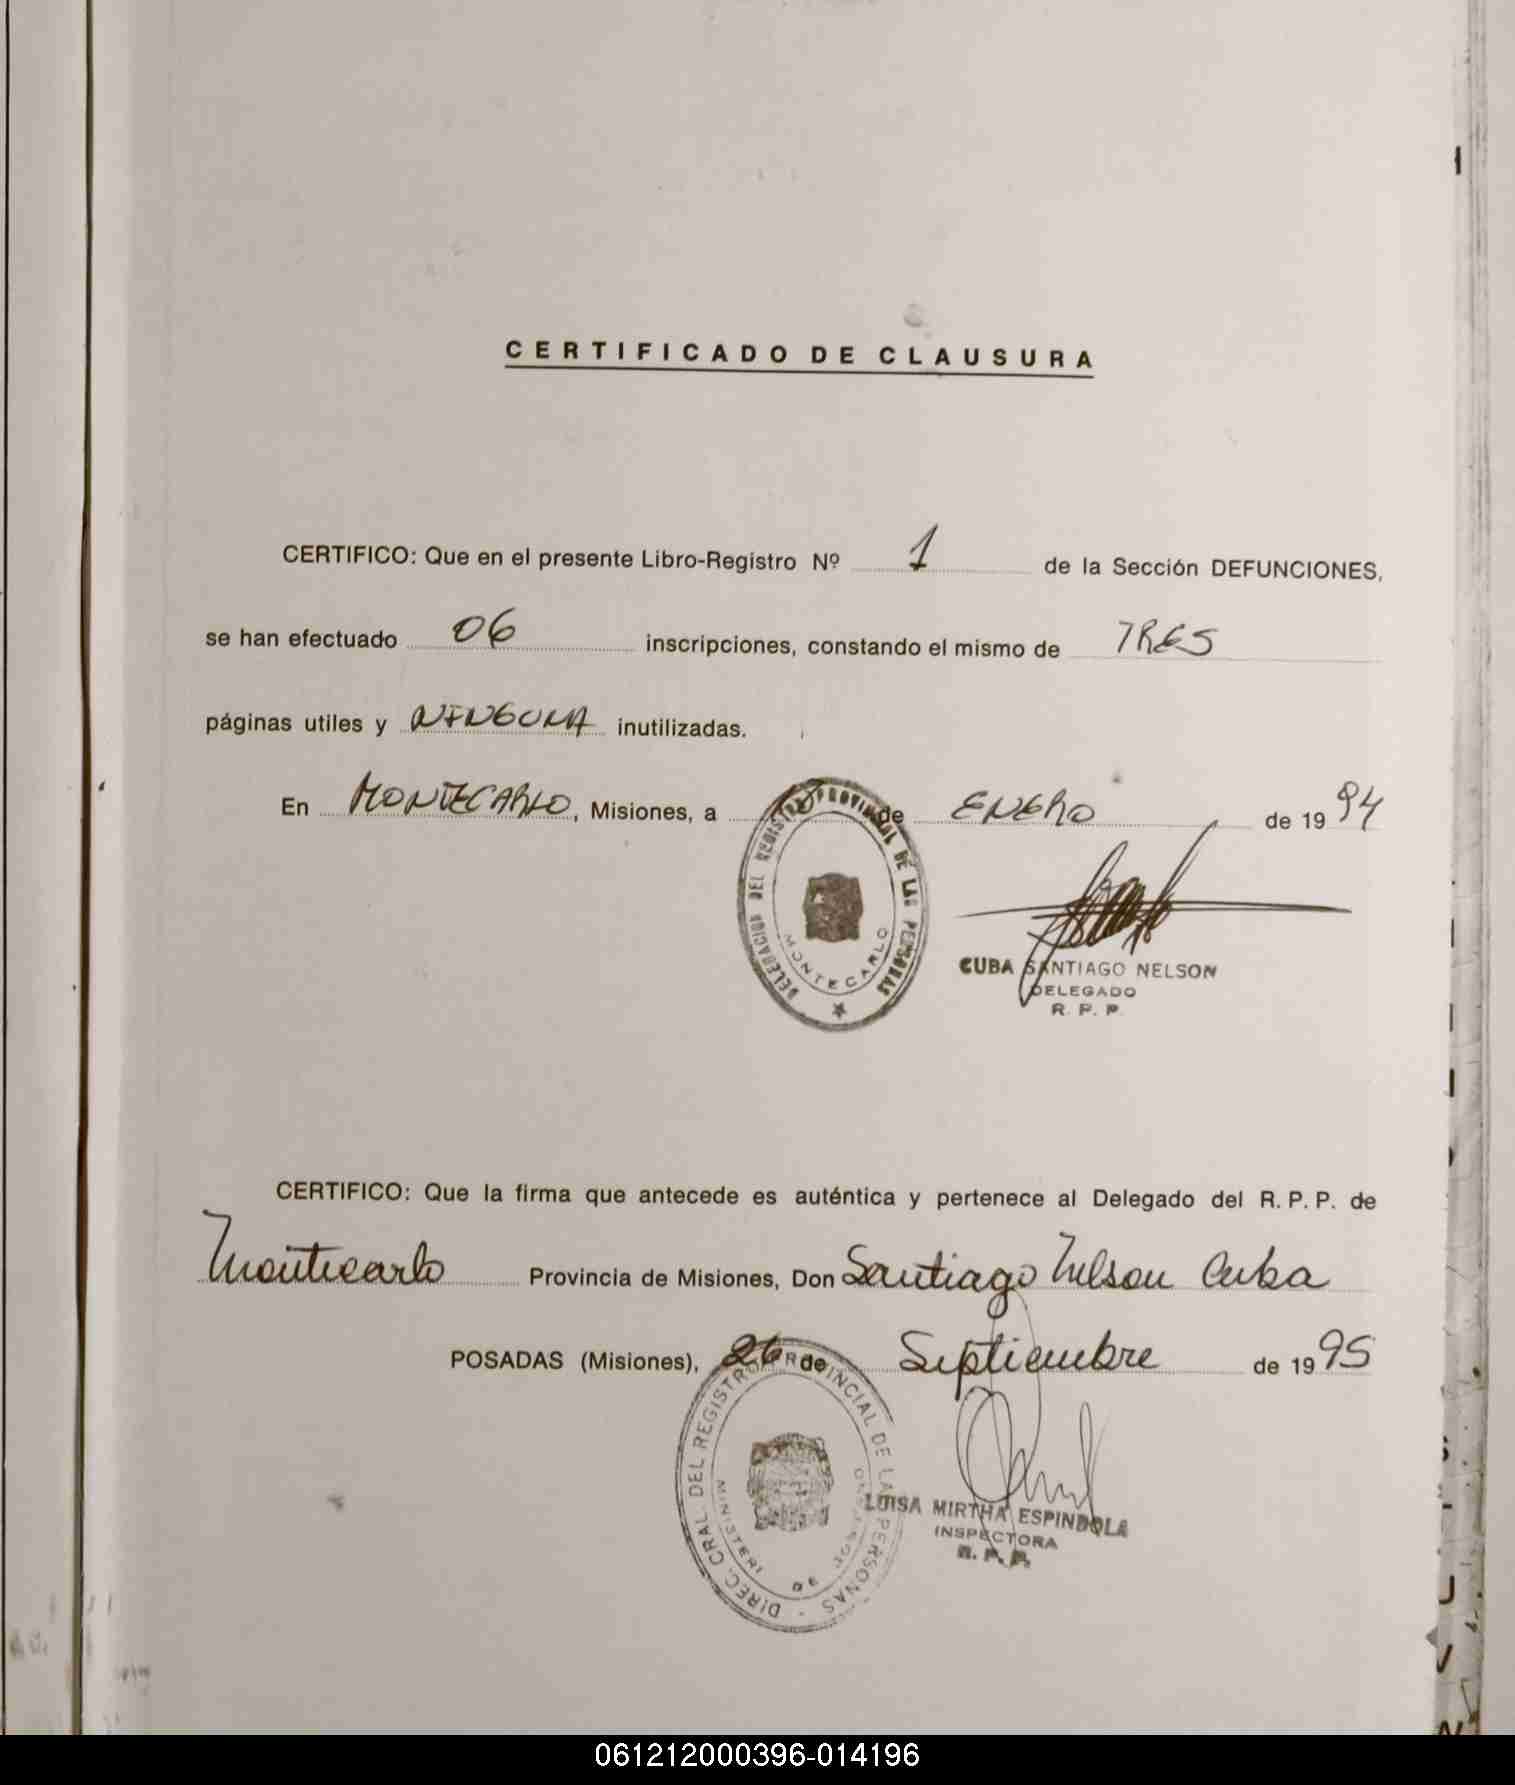 CERTIFICADO DE CLAUSURA
CERTIFICO: Que en el presente Libro-Registro Nº 1 de la Sección DEFUNCIONES,
se han efectuado 06 inscripciones, constando el mismo de TRES
páginas utiles y NINGUNA inutilizadas.
En MONTECARLO, Misiones, a de ENERO de 1994
DELEGACION DEL REGISTRO PROVINCIAL DE LAS PERSONAS
MONTECARLO
CUBA SANTIAGO NELSON
DELEGADO
R. P. P.
CERTIFICO: Que la firma que antecede es auténtica y pertenece al Delegado del R. P. P. de
Montecarlo Provincia de Misiones, Don Santiago Nelson Cuba
POSADAS (Misiones), 26 de Septiembre de 1995
DIREC. GRAL. DEL REGISTRO PROVINCIAL DE LAS PERSONAS
LUISA MIRTHA ESPINDOLA
INSPECTORA
R. P. P.
061212000396-014196